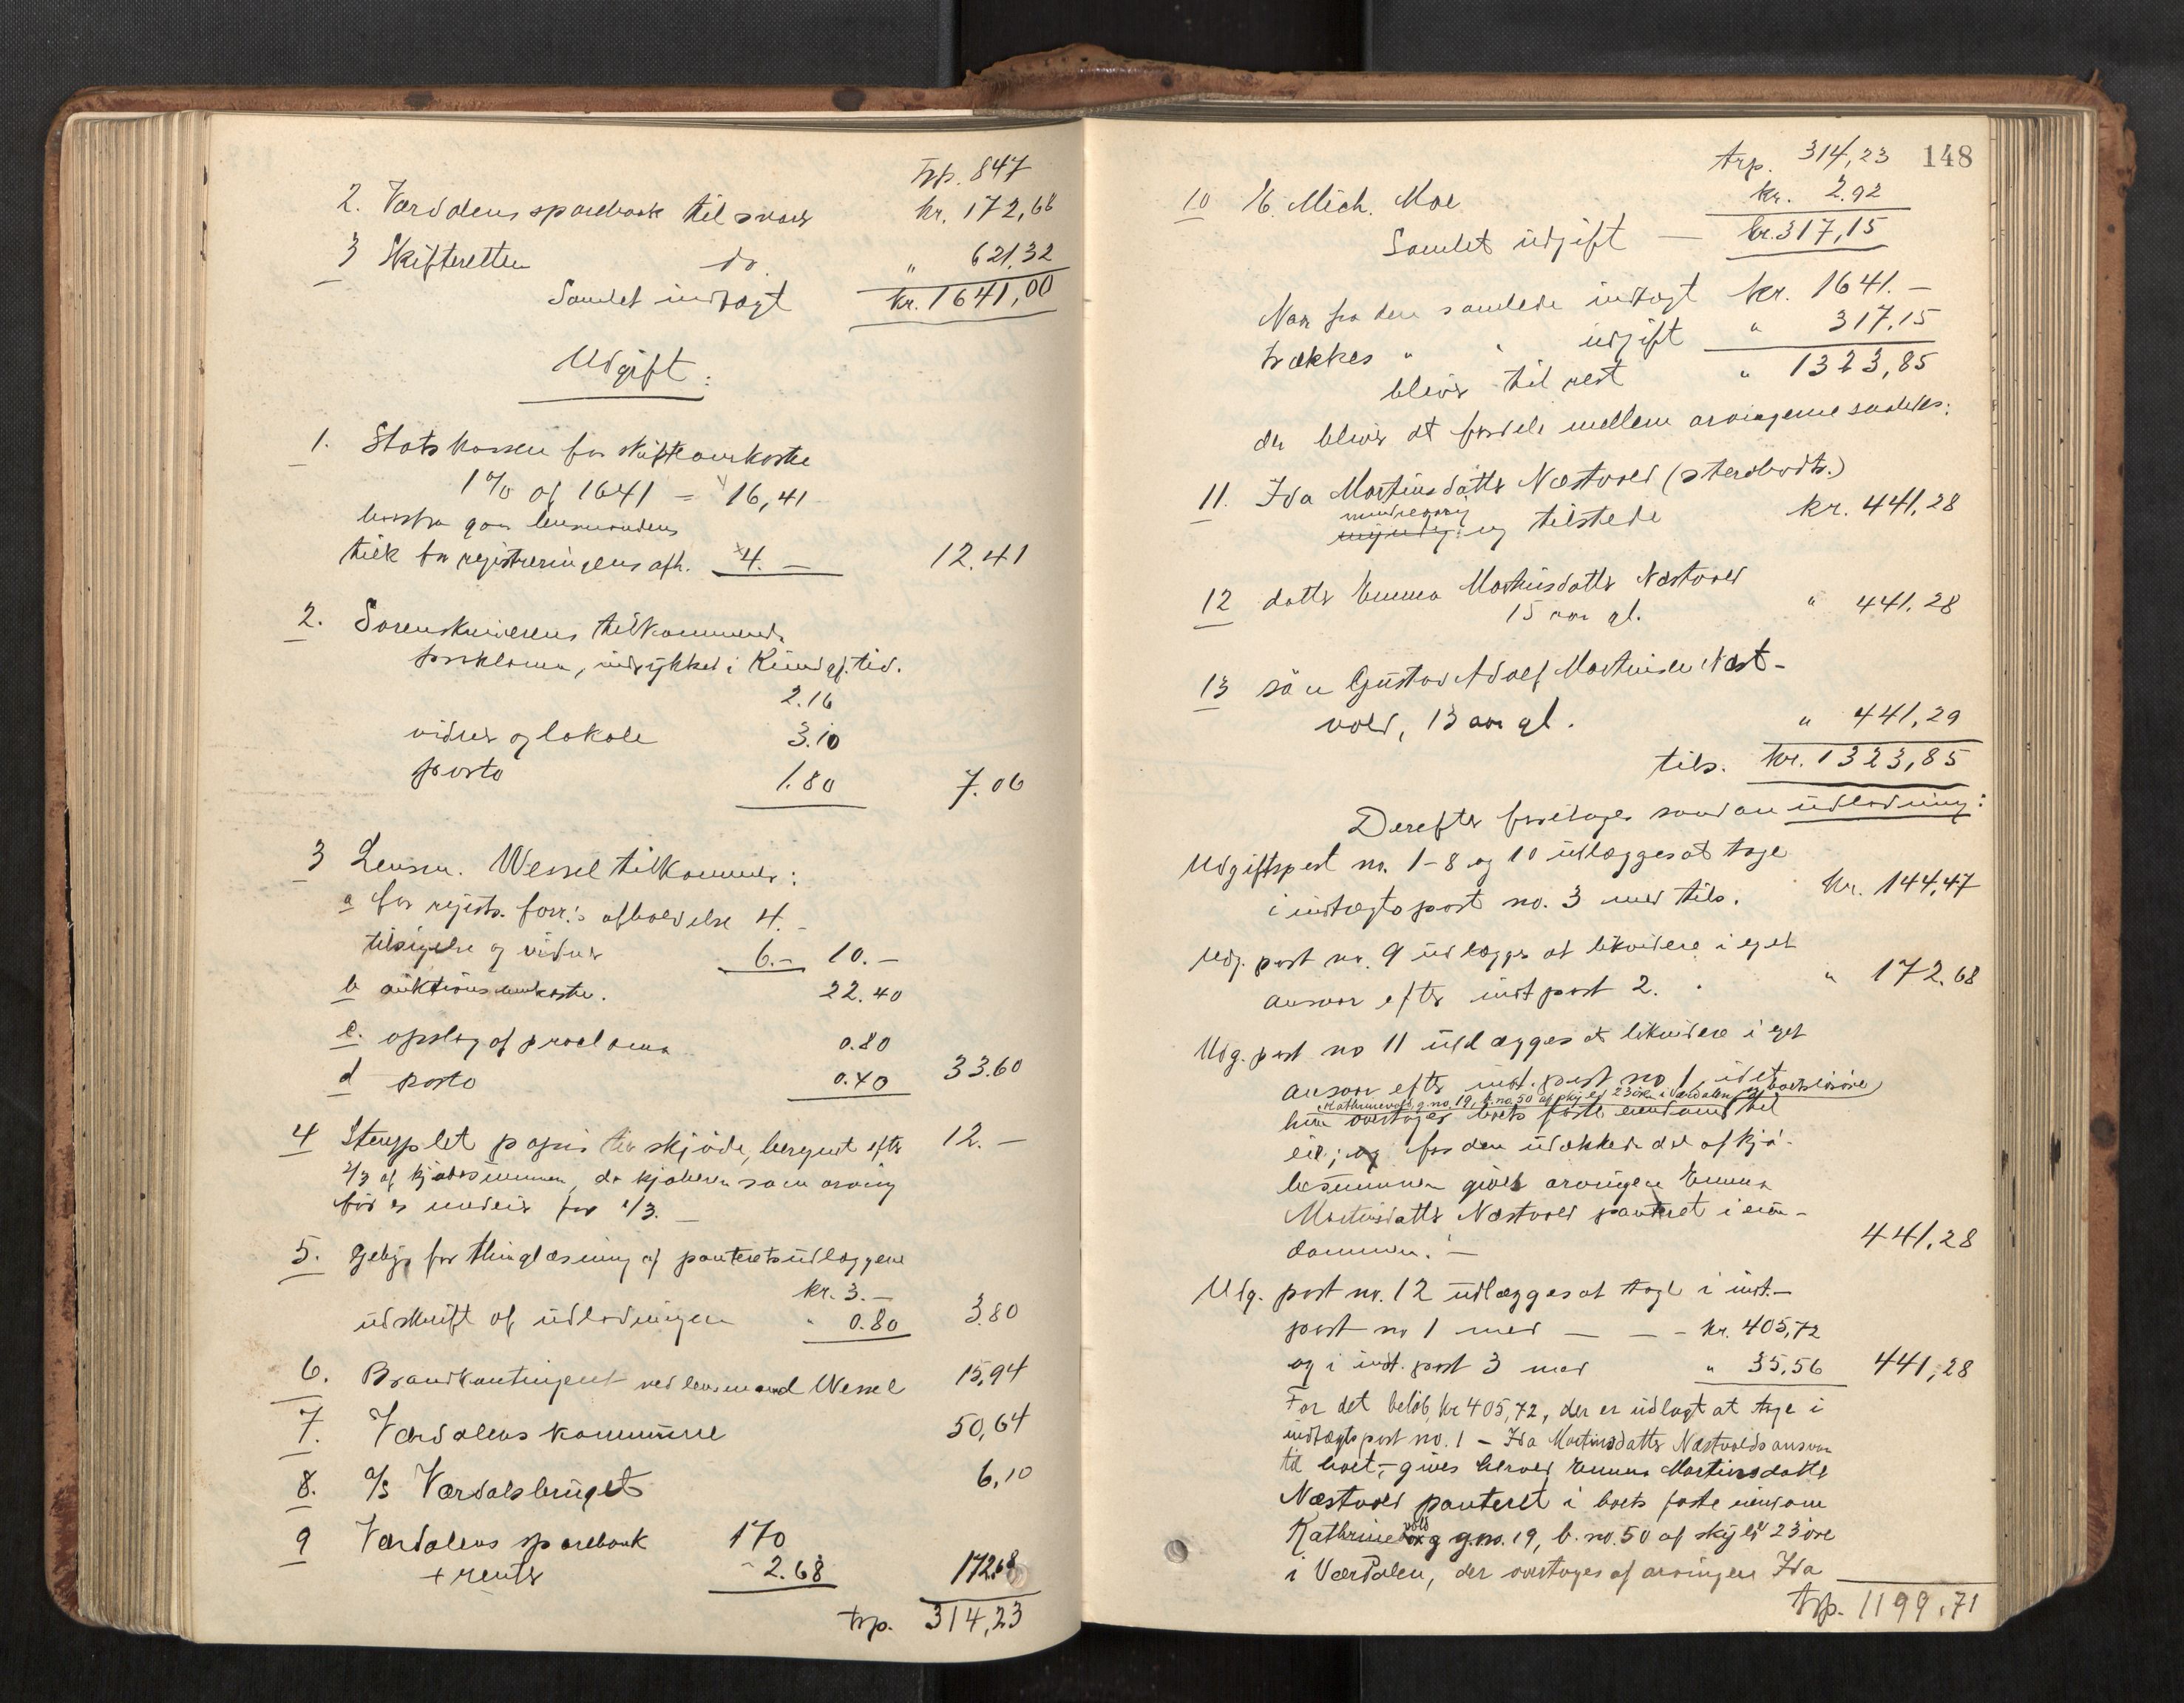 Trp. 847
2. Værdalens sparebank til svar kr. 172,68
3 Skifteretten do. " 621,32
Samlet indtægt kr. 1641,00
Udgift:
1. Statskassen for skifteomkostn.
1% af 1641 = 16,41
herfra gaar lensmandens
tilk for registreringens afh. 4. — 12.41
2. Sorenskriverens tilkommende
proklama, indrykket i Kundgj. tid.
2.16
vidner og lokale 3.10
porto 1.80 7.06
3 Lensm. Wessel tilkommer:
a for registr. forr.s afholdelse 4. -
tilsigelse og vidner 6.- 10. -
b auktionsomkostn. 22.40
c. opslag af proclama 0.80
d porto 0.40 33.60
4 Stemplet papir til skjøde, beregnet efter 12. -
2/3 af kjøbesummen, da kjøberen som arving
før er medeier for 1/3. -
5. Gebyr for thinglæsning af panteretsudlæggene
kr. 3. -
udskrift af udlodningen " 0.80 3.80
6. Brandkontingent ved lensmand Wessel 15,94
7. Værdalens kommune 50,64
8. A/S Værdalsbruget 6,10
9 Værdalens sparebank 170
+ renter 2.68 172.68
trp. 314,23
148
trp. 314,23
10 E. Mich. Moe kr. 2.92
Samlet udgift — kr. 317,15
Naar fra den samlede indtægt kr. 1641. -
trækkes " " udgift " 317.15
bliver til rest " 1323,85
der bliver at fordele mellem arvingerne saaledes:
11. Ida Martinsdatter Næstvold (sterbodts.)
mindreaarig
myndig og tilstede kr. 441,28
12 datter Emma Martinsdatter Næstvold
15 aar gl. " 441.28
13 søn Gustav Adolf Martinsen Næst-
vold, 13 aar gl. " 441,29
tils. kr. 1323,85
Derefter foretages saadan udlodning:
Udgiftspost no. 1-8 og 10 udlægges at tage
i indtægtspost no. 3 med tils. kr. 144,47
Udg. post no. 9 udlægges at likvidere i eget
ansvar efter indt post 2. " 172.68
Udg. post no 11 udlægges at likvidere i eget
ansvar efter indt. post no 1, idet
Kathrinevold g. no. 19, b. no. 50 af skyld 23 øre i Værdalen og boets løsøre
hun overtager boets faste eiendom til
eie; og for den udækkede del af kjø-
besummen gives arvingen Emma
Martinsdatter Næstvold panteret i eien-
dommen. — 441,28
Udg. post no. 12 udlægges at tage i indt.-
post no 1 med — — - kr. 405,72
og i indt. post 3 med " 35,56 441,28
For det beløb kr 405,72, der er udlagt at tage i
indtægtspost no. 1 - Ida Martinsdatter Næstvolds ansvar
til boet, - gives herved Emma Martinsdatter
Næstvold panteret i boets faste eiendom
vold
Kathrineborg g.no. 19, b. no. 50 af skyld 23 øre
i Værdalen, der overtages af arvingen Ida
trp. 1199,71